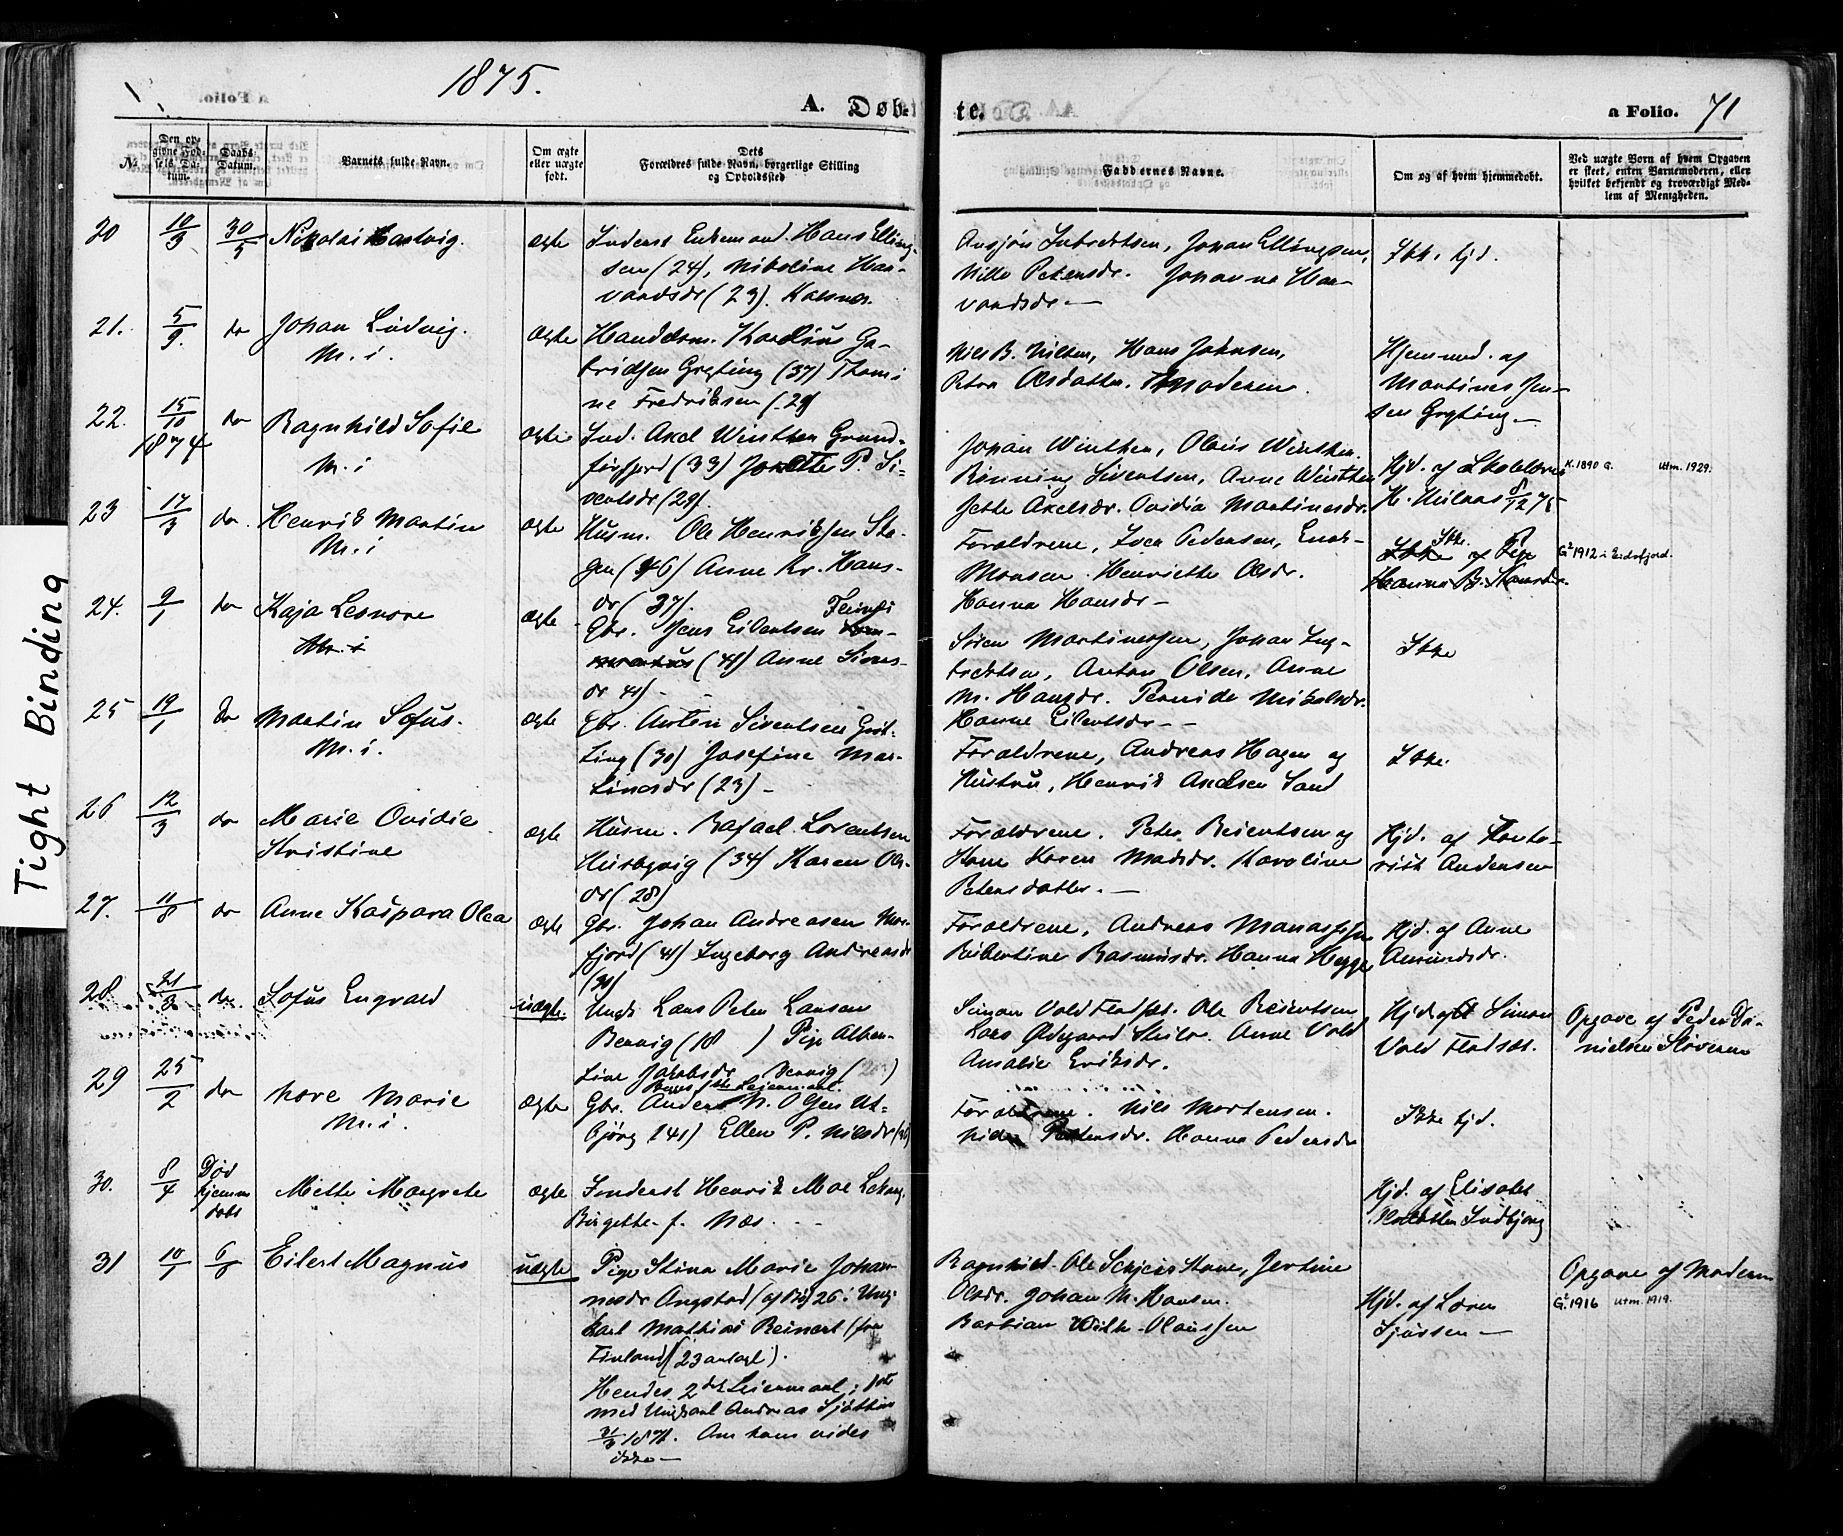 1875.
a Folio.
A. Døbte.
a Folio. 71
No.
Den opgivne Fødsels Datum.
Daabs Datum.
Barnets fulde Navn.
Om ægte eller uægte født.
Dets Forældres fulde Navn, borgerlige Stilling og Opholdssted
Faddernes Navne.
Om og af hvem hjemmedøbt.
Ved uægte Børn af hvem Opgaven er skeet, enten Barnemoderen, eller hvilket bekjendt og troværdigt Medlem af Menigheden.
Tight Binding
20 10/3 30/5 Nikolai Hartvig. ægte
Inderst Enkemand Hans Elling-
sen (24), Nikoline Haa-
vardsdr (23).
Johan Ellingsen,
Nille Petersdr. Johanna Haa-
vardsdr. —
Ikk. hjd.
21. 5/9 do Johan Ludvig. ægte
M. i.
Ga-
brielsen Grytting (37) Thomi-
ne Fredriksen (29)
Nils B. Nilsen, Hans Johnsen,
Petra Olsdatter. Moderen.
Hjemmed. af
Martines Jen-
sen Grytting. —
22. 15/10 1874 do Ragnhild Sofie ægte
M. i
Ind. Axel Winther Grund-
førfjord (33) Jonette P. Si-
vertsdr (29)
Johan Winther, Oluis Winther.
Rønning Sivertsen, Anne Winther
Jette Axelsdr. Ovidia Martinesdr.
Hjd. af Skolelærer
K. 1890 G. Utm. 1929.
23 17/3 do. Henrik Martin ægte
M. i
Husm. Ole Henriksen Sta-
gen (46) Anne Kr. Hans-
dr (37).
Forældrene, Iver Pedersen,
Monsen. Henriette Olsdr.
Hanna Hansdr —
Ikke af Pige
Hanna B. Hansdr.
G. 1912 i Eidsfjord.
24. 9/1 do Kaja Leonore ægte
M. i
Gbr. Jens Eilertsen
(41) Anne Sivers-
dr 41) —
Søren Martinessen, Johan Ing-
bertsen, Anton Olsen, Anne
M. Hansdr. Pernide Mikalsdr.
Hanne Eilertsdr — —
Ikke
25 19/1 do Martin Sofus. ægte
M. i.
Gbr. Anton Sivertsen Gryt-
ting (30) Josefine Mar-
tinesdr (23) —
Forældrene, Andreas Hagen og
Hustru, Henrik Axelsen Sand
Ikke.
26 12/3 do Marie Ovidie ægte
Kristine
Husm. Rafael Lorentsen
Husbyvig (34) Karen Ols-
dr (28)
Forældrene. Peter Reiertsen og
Kone Karen Madsdr. Karoline
Petersdatter. —
Hjd. af Konto-
rist Andersen
27. 11/8 do Anne Kaspara Olea ægte
Gbr. Johan Andreasen Mor-
fjord (41) Ingeborg Andreasdr
Forældrene, Andreas Manassen
Reibertine Rasmusdr. Hanna Hegge
Hjd. af Anne
Amundsdr.
28. 21/3 do. Sofus Engvald uægte.
Ungk. Lars Peter Larsen
Bervig (18 ) Pige Alber-
tine Jakobsdr
Simon Vold Fladset. Ole Reiertsen
Lars Ødegaard Anne Vold
Amalie Eriksdr.
Hjd. af Simon
Vold Fladset.
Opgave af Peder Da-
nielsen Støveren
29 25/2 do Nore Marie ægte
M. i.
Gbr. Anders N. Olsen Ut-
björg (41) Ellen P. Nilsdr
Forældrene. Nils Mortensen.
Petersdr. Hanna Pedersdr
Ikke hjd.
30. 8/4 Død
hjemme
døbt
Mette Margrete ægte
Inderst Henrik Moe Lekang.
Birgette f. Næs.
Hjd. af Elisabet
31 10/1 6/8 Eilert Magnus uægte
Pige Stina Marie Johan-
nesdr Angstad (af Bø) 26. Ung-
karl Mathias Reinert (fra
Finland) (23 antagl).
Hendes 2det Leiermaal; 1ste
med Ungkarl Andreas
31/3 1871. Om ham vides
ikke —
Ragnhild Ole Stave, Jertine
Olsdr. Johan M. Hansen.
Bastian Wilh. Olaussen
Hjd. af Søren
Sjursen —
Opgave af Moderen
G. 1916 Utm. 1919.